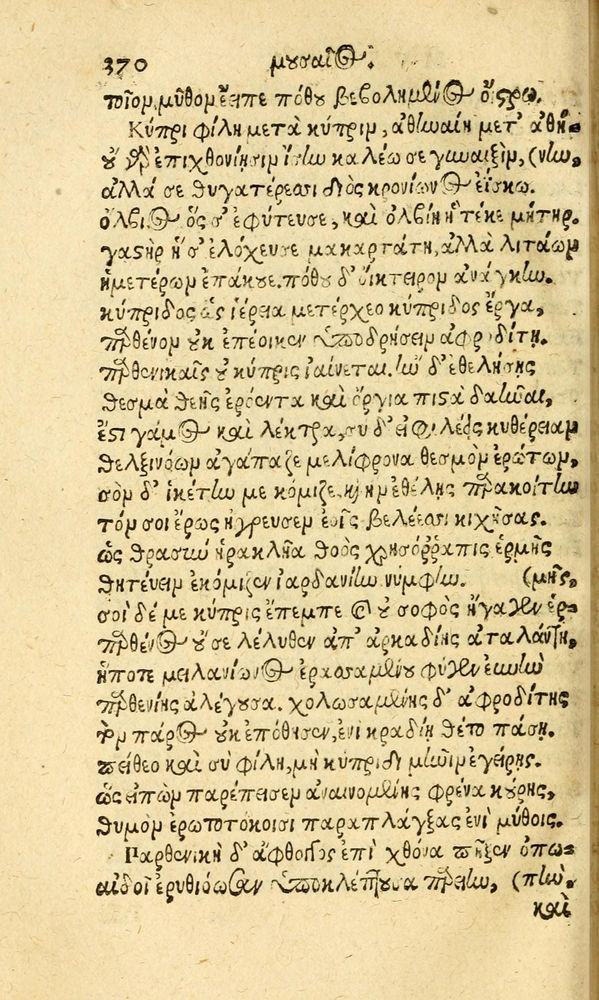 370 μουσαῖος.
τοῖον μῦθον ἔειπε πόθου βεβολημένος οἴστρῳ.
Κύπρι φίλη μετὰ κύπριν, ἀθηναίη μετ' ἀθή-
οὐ γὰρ ἐπιχθονίησιν ἴσην καλέω σε γυναιξὶν, (νην,
ἀλλά σε θυγατέρεσσι Διὸς κρονίωνος ἐΐσκω.
ὄλβιος ὅς σ' ἐφύτευσε, καὶ ὀλβίη ἣ τέκε μήτηρ.
γαστὴρ ἥ σ' ἐλόχευσε μακαρτάτη, ἀλλὰ λιτάων
ἡμετέρων ἐπάκουε. πόθου δ' οἴκτειρον ἀνάγκην.
κύπριδος ὡς ἱέρεια μετέρχεο κύπριδος ἔργα,
παρθένον οὐκ ἐπέοικεν ὑποδρήσειν ἀφροδίτη.
παρθενικαῖς οὐ κύπρις ἰαίνεται. ἢν δ' ἐθελήσης
θεσμὰ θεῆς ἐρόεντα καὶ ὄργια πιστὰ δαῆναι,
ἔστι γάμος καὶ λέκτρα, σὺ δ' εἰ φιλέεις κυθέρειαν
θελξινόων ἀγάπαζε μελίφρονα θεσμὸν ἐρώτων,
σὸν δ' ἱκέτην με κόμιζε, καὶ ἢν ἐθέλης παρακοίτην
τόν σοι ἔρως ἤγρευσεν ἑοῖς βελέεσσι κιχήσας.
ὡς θρασὺν ἡρακλῆα θοὸς χρυσόῤῥαπις ἑρμῆς
θητεύειν ἐκόμιζεν ἰαρδανίην νύμφην. (μῆς,
σοὶ δέ με κύπρις ἔπεμπε καὶ οὐ σοφὸς ἤγαγεν ἑρ-
παρθένος οὔ σε λέληθεν ἀπ' ἀρκαδίης ἀταλάντη,
ἥ ποτε μειλανίωνος ἐρασσαμένου φύγεν εὐνὴν
παρθενίης ἀλέγουσα. χολωσαμένης δ' ἀφροδίτης
τὸν πάρος οὐκ ἐπόθησεν, ἐνὶ κραδίη θέτο πάση.
πείθεο καὶ σὺ φίλη, μὴ κύπριδι μῆνιν ἐγείρης.
ὣς εἰπὼν παρέπεισεν ἀναινομένης φρένα κούρης,
θυμὸν ἐρωτοτόκοισι παραπλάγξας ἐνὶ μύθοις.
Παρθενικὴ δ' ἄφθογγος ἐπὶ χθόνα πῆξεν ὀπω-
αἰδοῖ ἐρυθιόωσαν ὑποκλέπτουσα παρειὴν, (πὴν.
καὶ